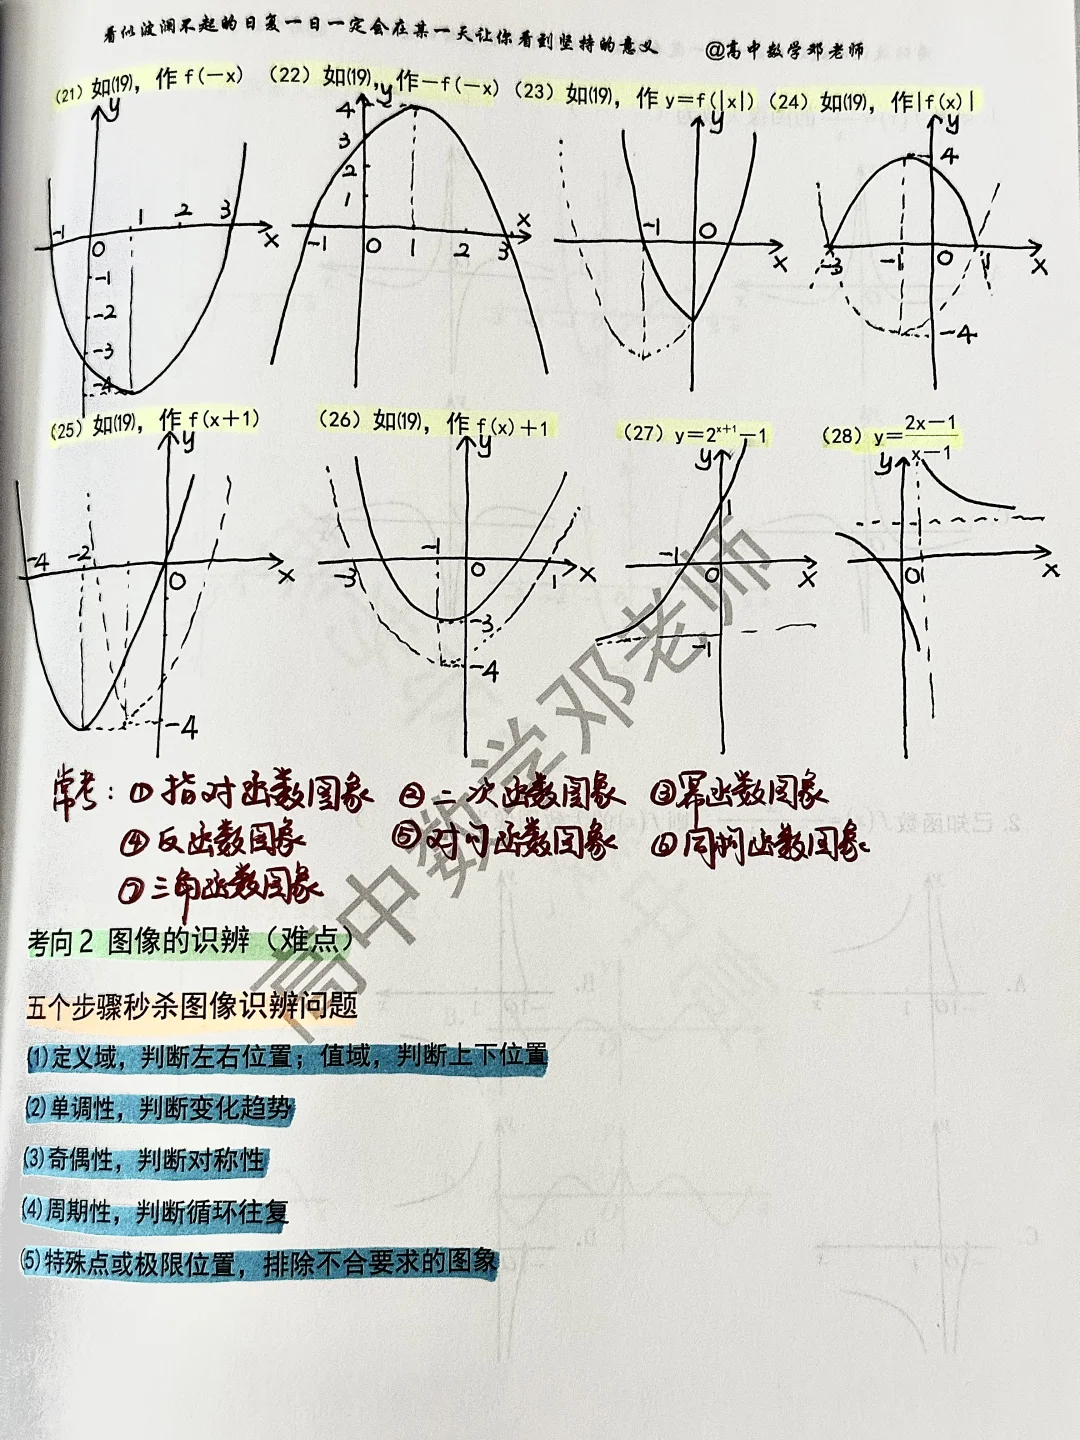 看似波澜不起的日复一日一定会在某一天让你看到坚持的意义 @高中数学邓老师
(21) 如(19)，作 f(-x) (22) 如(19)，作-f(-x) (23) 如(19)，作 y=f(|x|) (24) 如(19)，作|f(x)|
y -1 0 1 2 3 x -1 -2 -3 -4
y 4 3 2 1 -1 0 1 2 3 x
y -1 0 x
y 4 -3 -1 0 1 x -4
(25) 如(19)，作 f(x+1) (26) 如(19)，作 f(x)+1 (27) y=2^{x+1}-1 (28) y=\frac{2x-1}{x-1}
y -4 -2 0 x -4
y -3 -1 0 1 x -3 -4
y 1 -1 0 x -1
y 0 1 x
常考：①指对函数图象 ②二次函数图象 ③幂函数图象
④反函数图象 ⑤对勾函数图象 ⑥同构函数图象
⑦三角函数图象
考向 2 图像的识辨（难点）
五个步骤秒杀图像识辨问题
(1)定义域，判断左右位置；值域，判断上下位置
(2)单调性，判断变化趋势
(3)奇偶性，判断对称性
(4)周期性，判断循环往复
(5)特殊点或极限位置，排除不合要求的图象
高中数学邓老师